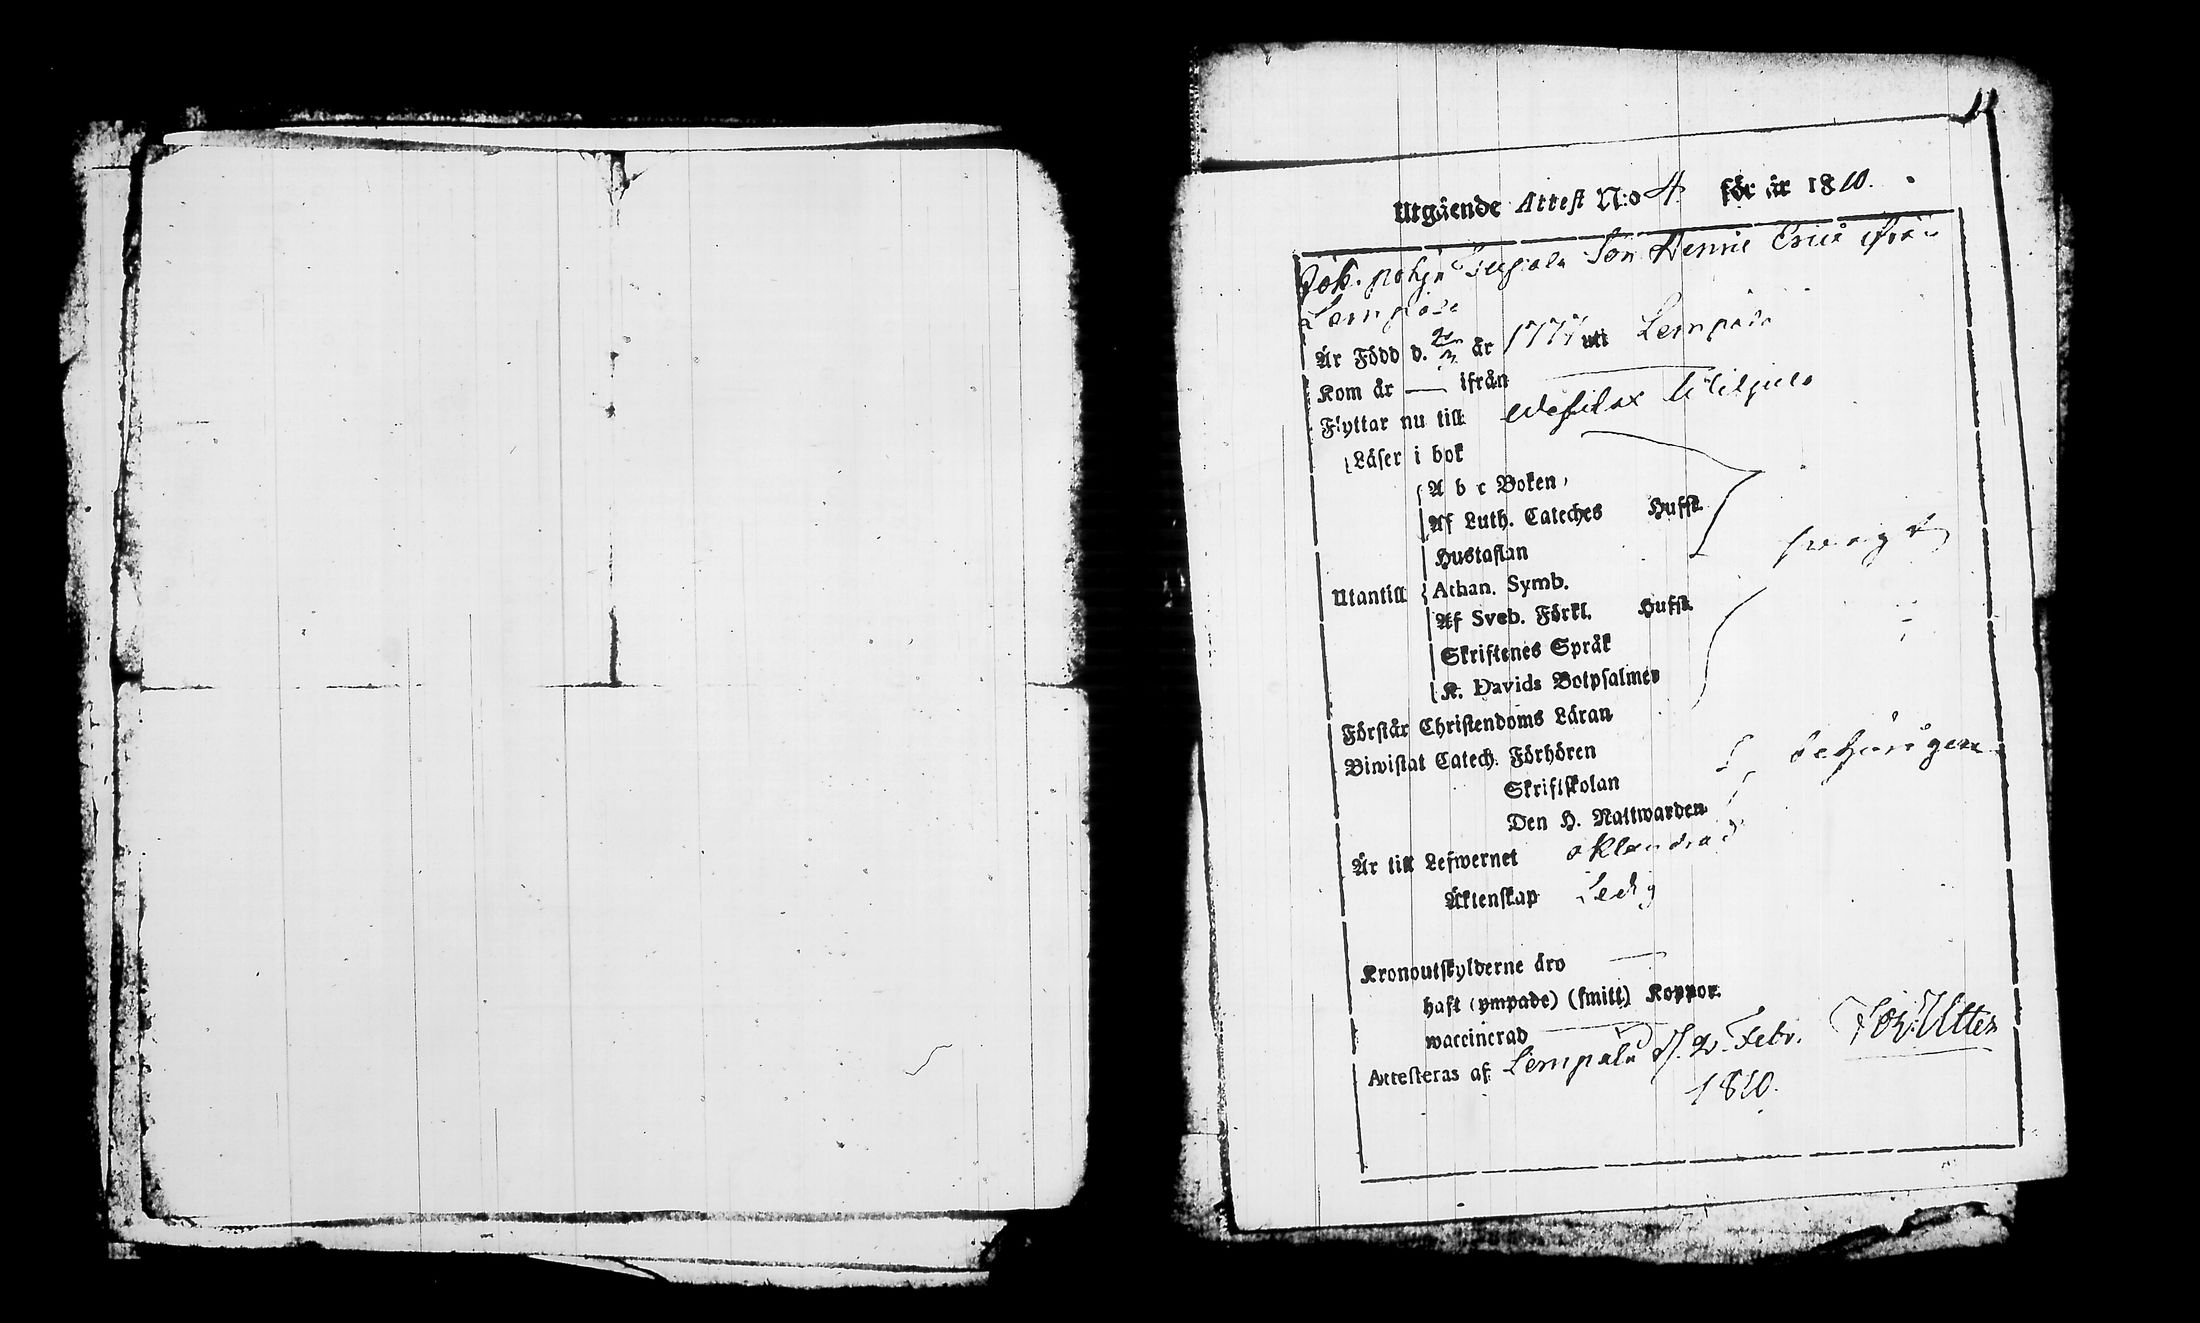 11
Utgående Attest N:o 4 för år 1810.
Joh. Son Henric Eric ifrån
Lempälä
Är Född d. år 177 uti Lempälä
Kom år — ifrån —
Flyttar nu till
Läser i bok
A b c Boken
Af Luth. Cateches Hufst.
Hustaflan
swagt
Utantill Athan. Symb.
Af Sveb. Förkl. Hufst.
Skriftenes Språk
K. Davids Botpsalmer
Förstår Christendoms Läran
Biwistat Catech. Förhören behörigen
Skriftskolan
Den H. Nattwarden
Är till Lefwernet oklandrad
Äktenskap Ledig
Kronoutskylderne äro —
haft (ympade) (smitt) Koppor.
waccinerad —
Attesteras af Lempälä d. 2. Febr.
1810.